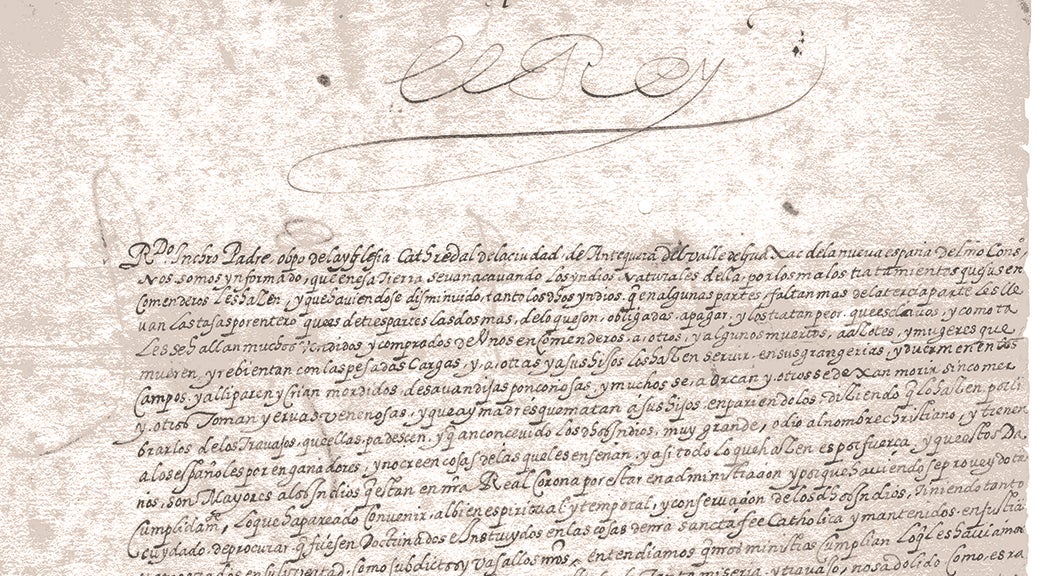 el Rey
Rdo Inchro Padre, obpo de la yglesia Cathredal de la ciudad, de Antequera del valle de guaxac de la nueva españa de lmo Cons
Nos somos ynformado, que en esa Tierra, se van acavando los yndios Naturales della, por los malos tratamientos que sus en
Comenderos les hazen, y que haviendose disminuido, tanto los dhos yndios. q en algunas partes, faltan mas de la tercia parte les lle
van las tasas por entero que es de tres partes las dos mas, de lo que son, obligados, a pagar, y los tratan peor, que esclavos, y como ta
les se hallan muchos vendidos y comprados de Unos encomenderos a, otros, y algunos muertos, a açotes, y mugeres que
mueren, y rebientan con las pesadas Cargas, y, a, otras y a sus hijos los hazen servir en sus grangerias, y duermen en los
Campos, y alli paren y Crian mordidos, de savandijas ponçoñosas, y muchos se, ahorcan y, otros se dexan morir sin comer
y, otros Toman yervas venenosas, y que ay madres que matan a sus hijos, en pariendolos diziendo q lo hazen por li
brarlos de los Travajos, que ellas, padescen, y q an concevido los dhos Indios, muy grande, odio al nombre christiano, y tienen
a los españoles por engañadores, y no creen cosa de las que les enseñan, y asi todo lo que hazen es por fuerça, y que estos Da
ños, son Mayores a los Indios q estan en nra Real Corona por estar en administraçion y porque haviendose proveydo ta
Cumplidamte, lo que ha pareçido Convenir, al bien espiritual y temporal, y conservaçion de los dhos Indios, Tiniendo tanto
cuydado de procurar q fuesen Doctrinados e Instruydos en las cosas de nra sancta fee Catholica y mantenidos en justiçia
en su libertad, como subdictos y vasallos nros, entendiamos q nros ministros Cumplian lo q les haviamos
tanta miseria, y travajo, nos a dolido como, es ra